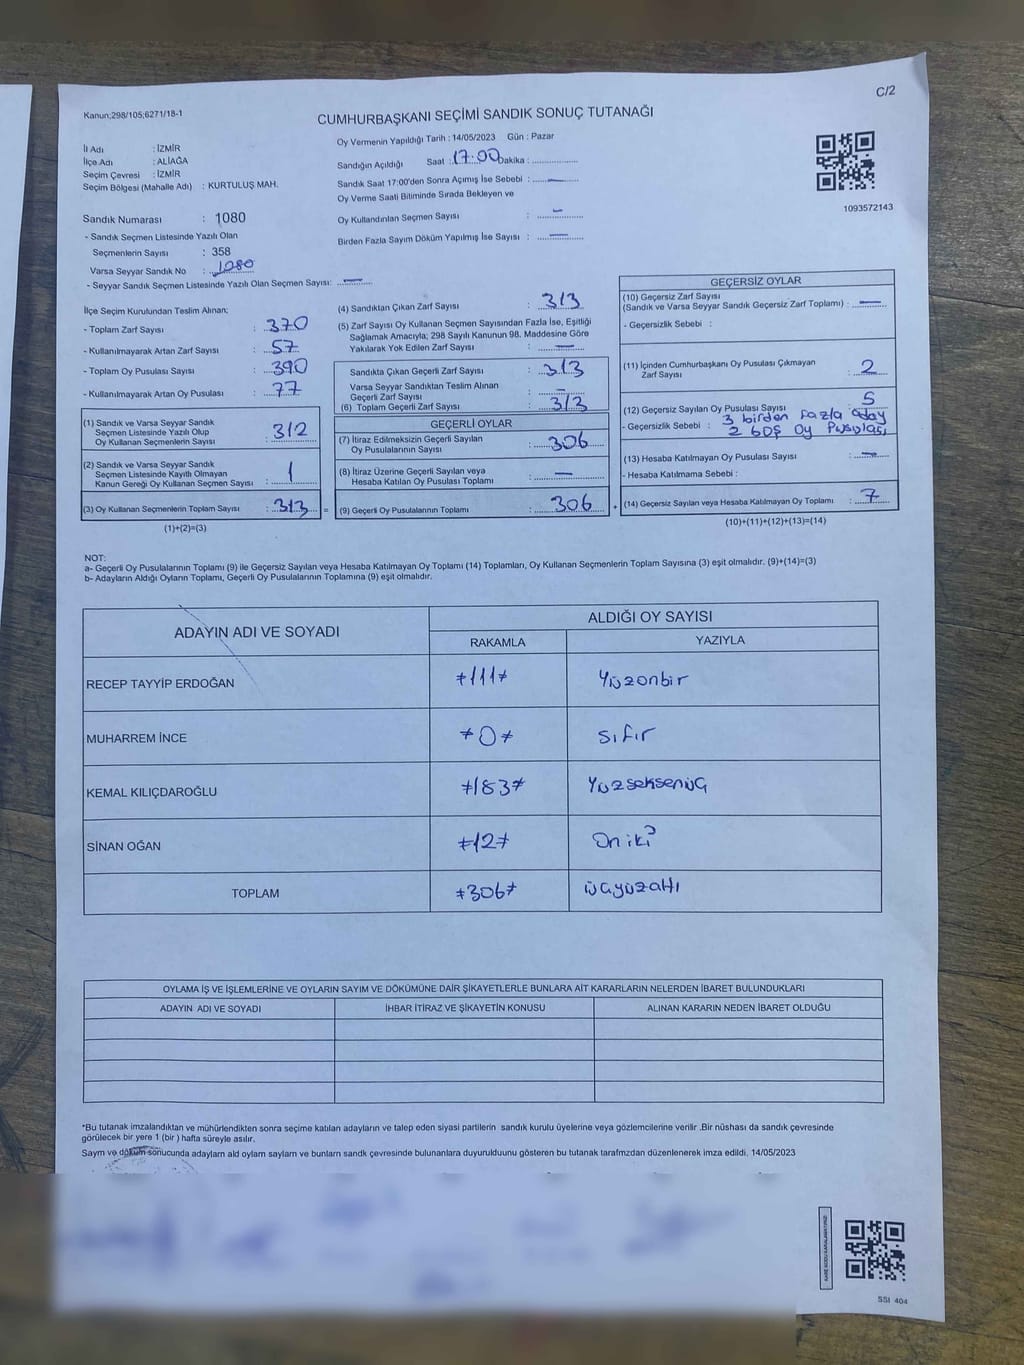 C/2
Kanun;298/105;6271/18-1
CUMHURBAŞKANI SEÇİMİ SANDIK SONUÇ TUTANAĞI
İl Adı : İZMİR
İlçe Adı : ALİAĞA
Seçim Çevresi : İZMİR
Seçim Bölgesi (Mahalle Adı) : KURTULUŞ MAH.
Sandık Numarası : 1080
- Sandık Seçmen Listesinde Yazılı Olan
Seçmenlerin Sayısı : 358
Varsa Seyyar Sandık No : 1080
- Seyyar Sandık Seçmen Listesinde Yazılı Olan Seçmen Sayısı: —
Oy Vermenin Yapıldığı Tarih : 14/05/2023 Gün : Pazar
Sandığın Açıldığı Saat : 17.00 Dakika :
Sandık Saat 17:00'den Sonra Açımış İse Sebebi : —
Oy Verme Saati Bitiminde Sırada Bekleyen ve
Oy Kullandırılan Seçmen Sayısı : —
Birden Fazla Sayım Döküm Yapılmış İse Sayısı : —
1093572143
İlçe Seçim Kurulundan Teslim Alınan;
- Toplam Zarf Sayısı : 370
- Kullanılmayarak Artan Zarf Sayısı : 57
- Toplam Oy Pusulası Sayısı : 390
- Kullanılmayarak Artan Oy Pusulası : 77
(1) Sandık ve Varsa Seyyar Sandık
Seçmen Listesinde Yazılı Olup
Oy Kullanan Seçmenlerin Sayısı : 312
(2) Sandık ve Varsa Seyyar Sandık
Seçmen Listesinde Kayıtlı Olmayan
Kanun Gereği Oy Kullanan Seçmen Sayısı : 1
(3) Oy Kullanan Seçmenlerin Toplam Sayısı : 313 =
(1)+(2)=(3)
(4) Sandıktan Çıkan Zarf Sayısı : 313
(5) Zarf Sayısı Oy Kullanan Seçmen Sayısından Fazla İse, Eşitliği
Sağlamak Amacıyla; 298 Sayılı Kanunun 98. Maddesine Göre
Yakılarak Yok Edilen Zarf Sayısı : —
Sandıkta Çıkan Geçerli Zarf Sayısı : 313
Varsa Seyyar Sandıktan Teslim Alınan
Geçerli Zarf Sayısı : —
(6) Toplam Geçerli Zarf Sayısı : 313
GEÇERLİ OYLAR
(7) İtiraz Edilmeksizin Geçerli Sayılan
Oy Pusulalarının Sayısı : 306
(8) İtiraz Üzerine Geçerli Sayılan veya
Hesaba Katılan Oy Pusulası Toplamı : —
(9) Geçerli Oy Pusulalarının Toplamı : 306 +
GEÇERSİZ OYLAR
(10) Geçersiz Zarf Sayısı
(Sandık ve Varsa Seyyar Sandık Geçersiz Zarf Toplamı) : —
- Geçersizlik Sebebi :
(11) İçinden Cumhurbaşkanı Oy Pusulası Çıkmayan
Zarf Sayısı : 2
(12) Geçersiz Sayılan Oy Pusulası Sayısı : 5
- Geçersizlik Sebebi : 3 birden fazla aday
2 boş oy pusulası
(13) Hesaba Katılmayan Oy Pusulası Sayısı : —
- Hesaba Katılmama Sebebi :
(14) Geçersiz Sayılan veya Hesaba Katılmayan Oy Toplamı : 7
(10)+(11)+(12)+(13)=(14)
NOT:
a- Geçerli Oy Pusulalarının Toplamı (9) ile Geçersiz Sayılan veya Hesaba Katılmayan Oy Toplamı (14) Toplamları, Oy Kullanan Seçmenlerin Toplam Sayısına (3) eşit olmalıdır. (9)+(14)=(3)
b- Adayların Aldığı Oyların Toplamı, Geçerli Oy Pusulalarının Toplamına (9) eşit olmalıdır.
ADAYIN ADI VE SOYADI
ALDIĞI OY SAYISI
RAKAMLA YAZIYLA
RECEP TAYYİP ERDOĞAN ≠111≠ Yüzonbir
MUHARREM İNCE ≠0≠ sıfır
KEMAL KILIÇDAROĞLU ≠183≠ Yüzseksenüç
SİNAN OĞAN ≠12≠ Oniki
TOPLAM ≠306≠ üçyüzaltı
OYLAMA İŞ VE İŞLEMLERİNE VE OYLARIN SAYIM VE DÖKÜMÜNE DAİR ŞİKAYETLERLE BUNLARA AİT KARARLARIN NELERDEN İBARET BULUNDUKLARI
ADAYIN ADI VE SOYADI İHBAR İTİRAZ VE ŞİKAYETİN KONUSU ALINAN KARARIN NEDEN İBARET OLDUĞU
*Bu tutanak imzalandıktan ve mühürlendikten sonra seçime katılan adayların ve talep eden siyasi partilerin sandık kurulu üyelerine veya gözlemcilerine verilir .Bir nüshası da sandık çevresinde
görülecek bir yere 1 (bir ) hafta süreyle asılır.
Sayım ve döküm sonucunda adaylarn ald oylarn saylarn ve bunlarn sandk çevresinde bulunanlara duyurulduunu gösteren bu tutanak tarafmzdan düzenlenerek imza edildi. 14/05/2023
SSI 404